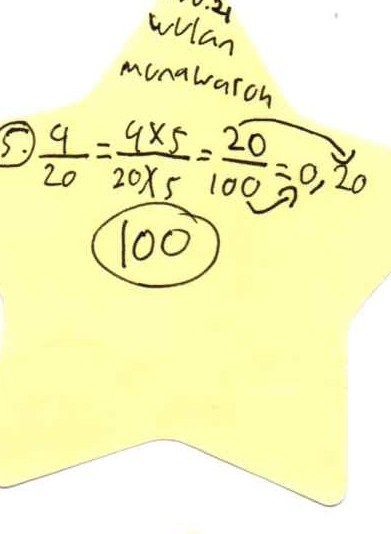 wulan
munawaroh
5. 4/20 = 4x5/20x5 = 20/100 = 0,20
100